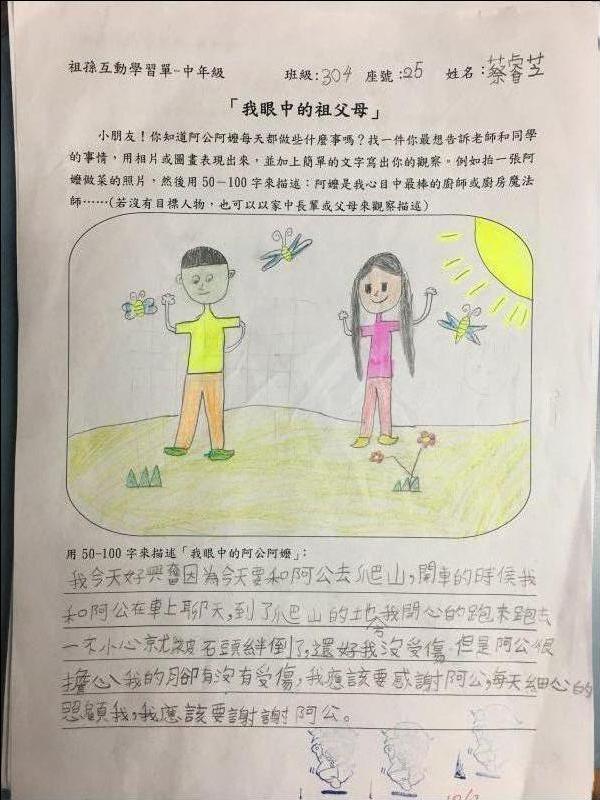 祖孫互動學習單-中年級 班級:304 座號:25 姓名:蔡睿芝
「我眼中的祖父母」
小朋友！你知道阿公阿嬤每天都做些什麼事嗎？找一件你最想告訴老師和同學
的事情，用相片或圖畫表現出來，並加上簡單的文字寫出你的觀察。例如拍一張阿
嬤做菜的照片，然後用50-100字來描述：阿嬤是我心目中最棒的廚師或廚房魔法
師……(若沒有目標人物，也可以以家中長輩或父母來觀察描述)
用 50-100 字來描述「我眼中的阿公阿嬤」：
我今天好興奮因為今天要和阿公去爬山，開車的時侯我
和阿公在車上聊天，到了爬山的地方我開心的跑來跑去
一不小心就被石頭絆倒了，還好我沒受傷。但是阿公很
擔心我的腳有沒有受傷，我應該要感謝阿公，每天細心的
照顧我，我應該要謝謝阿公。